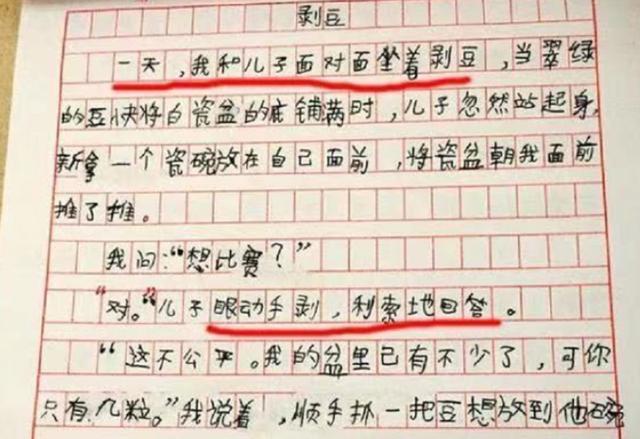 剥豆
一天，我和儿子面对面坐着剥豆，当翠绿
的豆快将白瓷盆的底铺满时，儿子忽然站起身，
新拿一个瓷碗放在自己面前，将瓷盆朝我面前
推了推。
我问：“想比赛？”
“对。”儿子眼动手剥，利索地回答。
“这不公平。我的盆里已有不少了，可你
只有几粒。”我说着，顺手抓一把豆想放到他碗